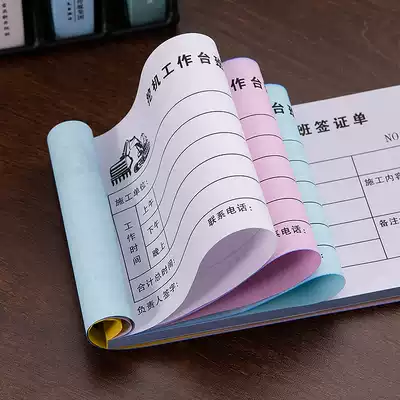 挖机工作台班
班签证单
NO
施工单位:
工作时间
上午
下午
晚上
联系电话:
合计总时间:
负责人签字:
机工作台
台班
施工内容
备注